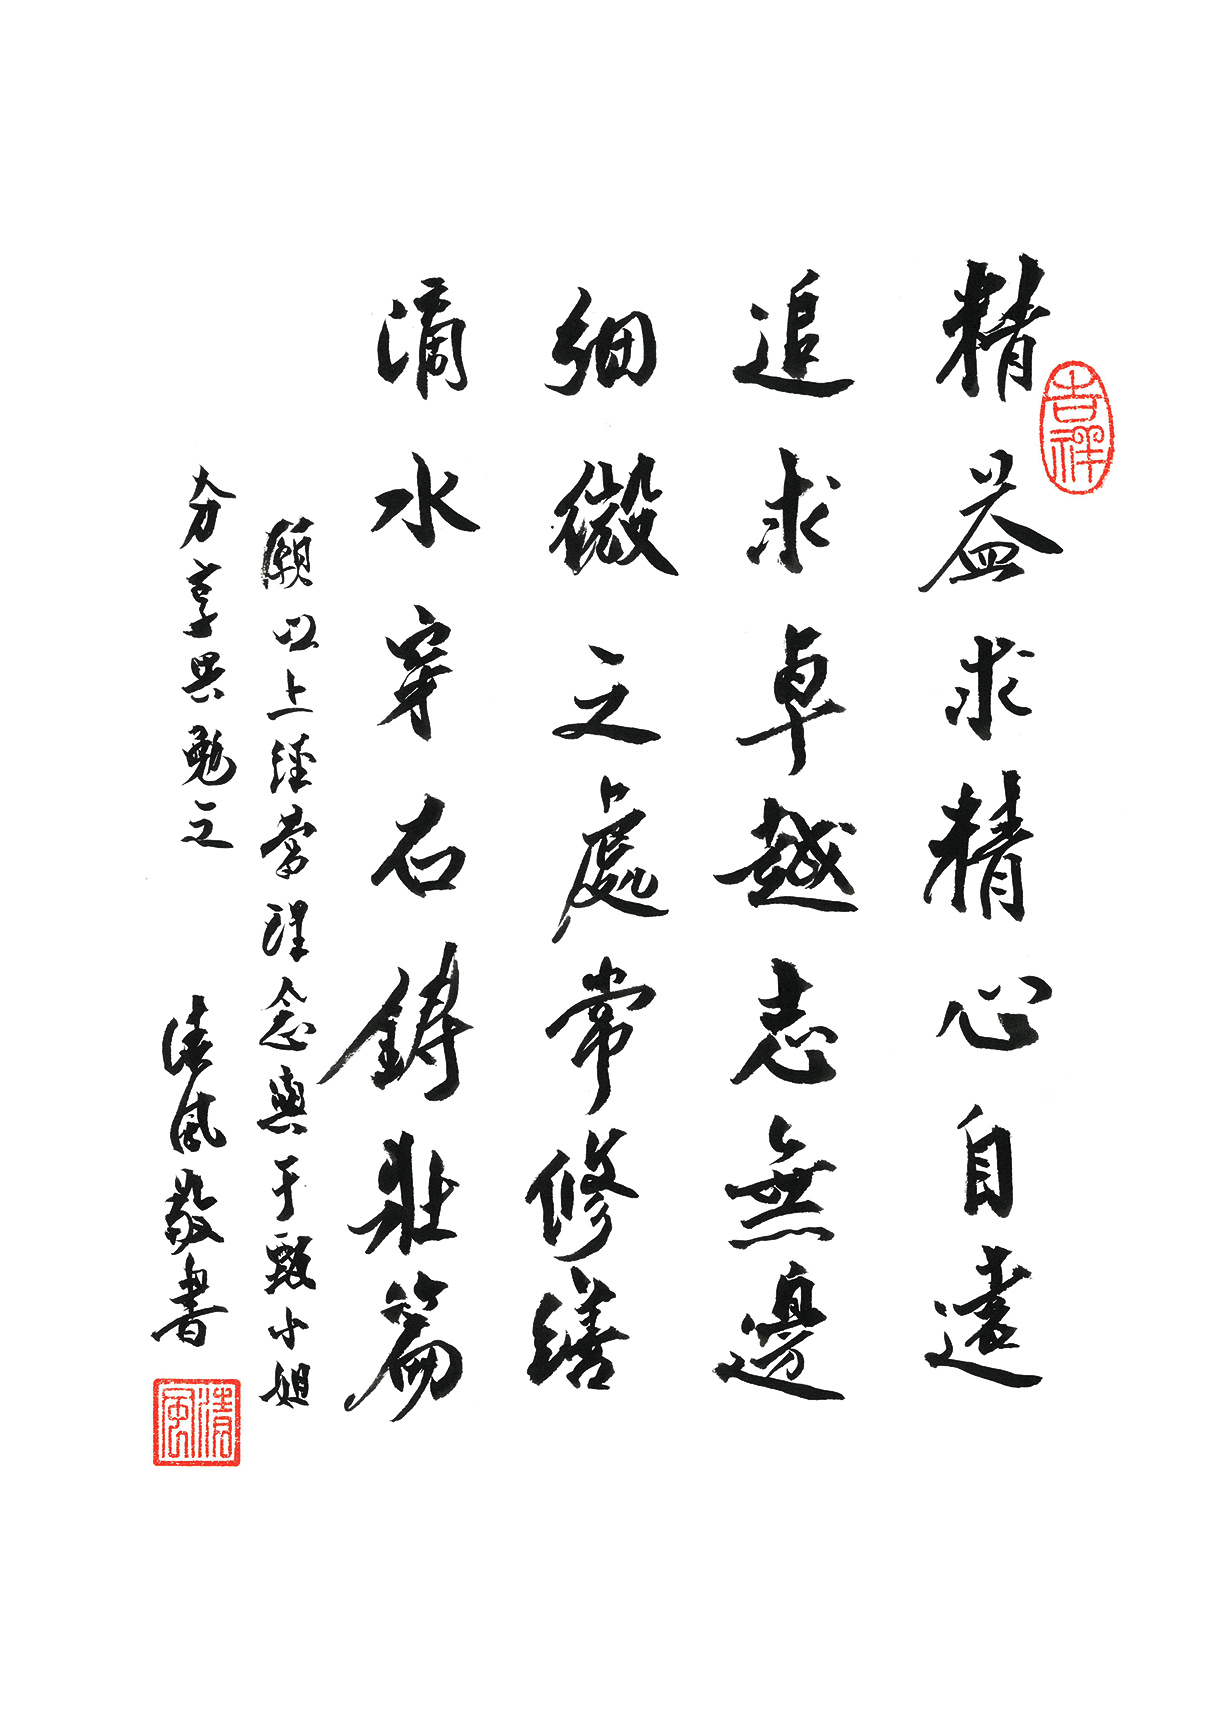 精益求精心自遠
吉祥
追求卓越志無邊
細微之處常修繕
滴水穿石鑄壯篇
願以上經營理念與于甄小姐
分享共勉之
清風敬書
清風